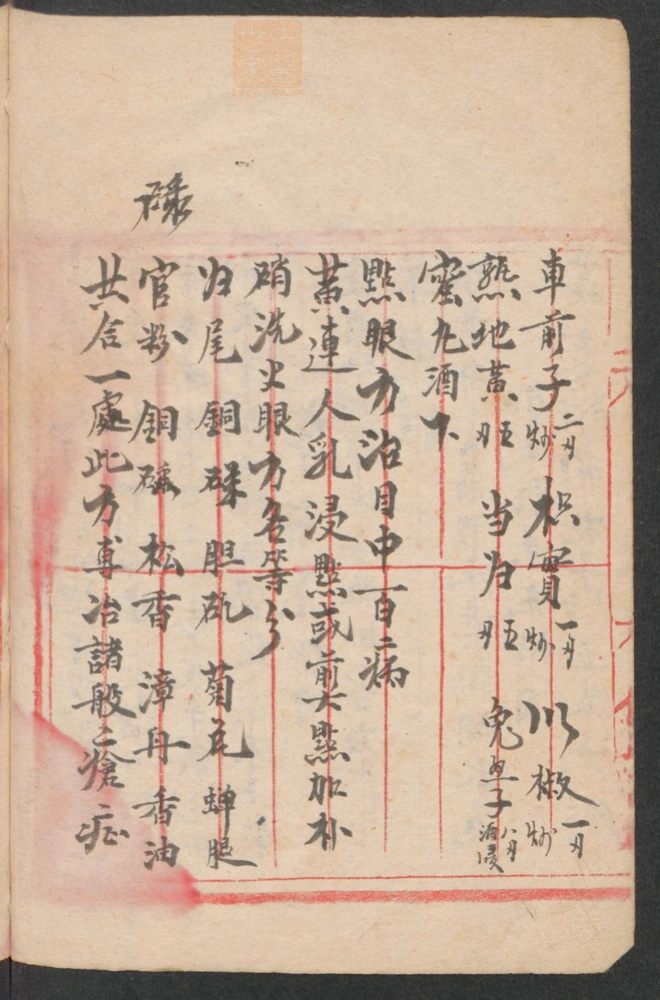 車前子二刄炒 枳實一刄炒 川椒一刄炒
熟地黄刄五 当归刄五 兔絲子八刄酒浸
蜜丸酒下
點眼方治目中百二病
黄連人乳浸點或煎點加朴
硝洗火眼方各等分
归尾 銅碌 胆矾 菊花 蝉腿
官粉 銅碌 松香 漳丹 香油
共合一處此方専治諸般二瘡症
碌